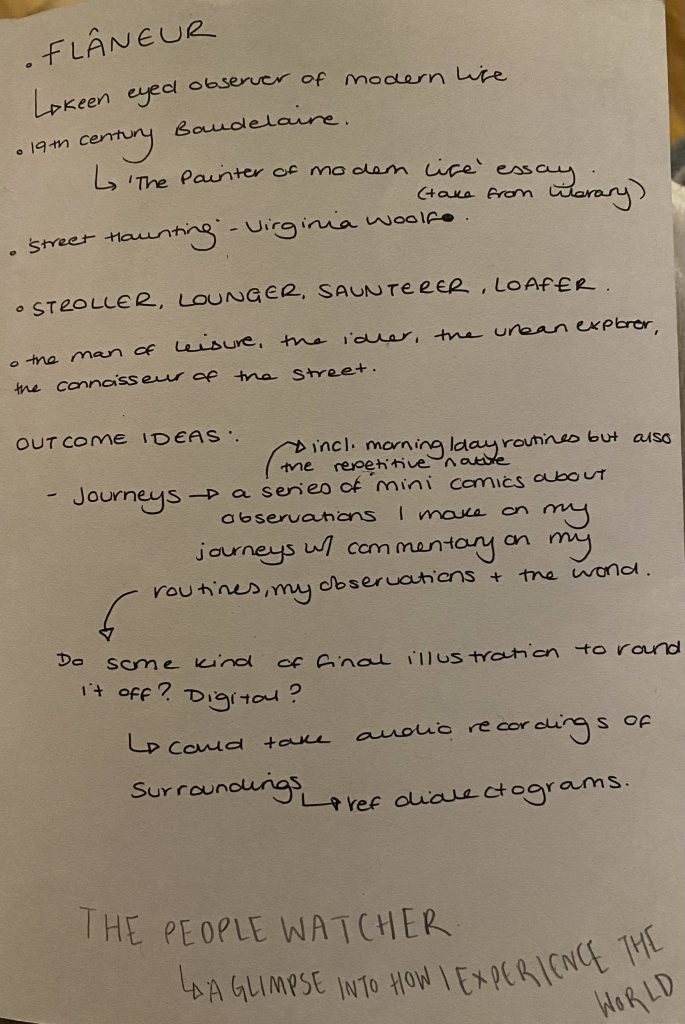 • FLÂNEUR
↳ Keen eyed observer of modern life
• 19th century Baudelaire.
↳ 'The Painter of modern Life' essay.
(take from library)
• 'Street Haunting' - Virginia Woolf.
• STROLLER, LOUNGER, SAUNTERER, LOAFER.
• the man of leisure, the idler, the urban explorer,
the connaisseur of the street.
OUTCOME IDEAS:
→ incl. morning/day routines but also
the repetitive nature
- Journeys → a series of mini comics about
observations I make on my
journeys w/ commentary on my
routines, my observations + the world.
Do some kind of final illustration to round
it off? Digital?
↳ could take audio recordings of
surroundings
↳ ref dialectograms.
THE PEOPLE WATCHER
↳ A GLIMPSE INTO HOW I EXPERIENCE THE
WORLD